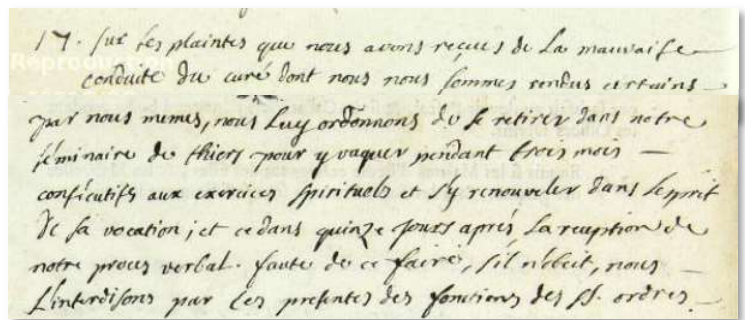 17. sur les plaintes que nous avons reçues de la mauvaise
conduite du curé dont nous nous sommes rendus certains
par nous memes, nous luy ordonnons de se retirer dans notre
séminaire de thiers pour y vaquer pendant trois mois
consécutifs aux exercices spirituels et s'y renouveler dans l'esprit
de sa vocation; et ce dans quinze jours aprés la reception de
notre proces verbal. faute de ce faire, s'il n'obeit, nous
L'interdisons par ces presentes des fonctions des ss. ordres